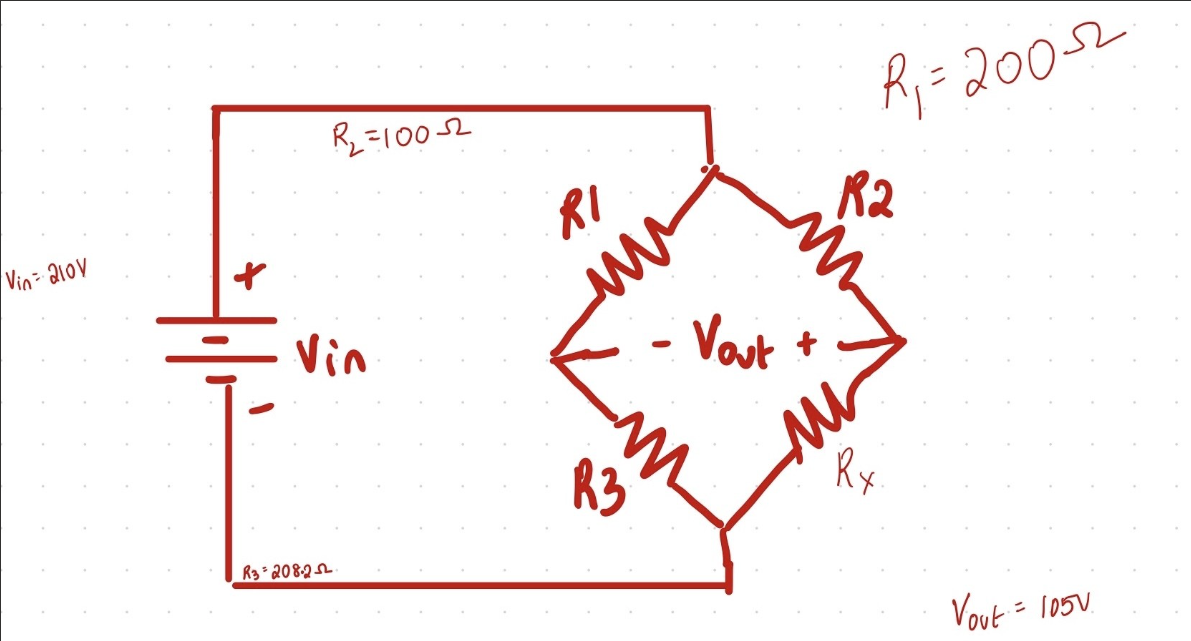 R₁ = 200Ω
R₂ = 100Ω
R1
R2
Vin = 210V
+
- Vout +
Vin
-
R3
Rx
R₃ = 208.2Ω
Vout = 105V